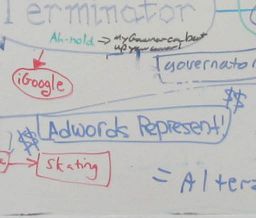 Terminator
Ah-nold → my Governor can beat
up your governor!
iGoogle
governator
$$
$$ Adwords Represent!
Skating
= Alter